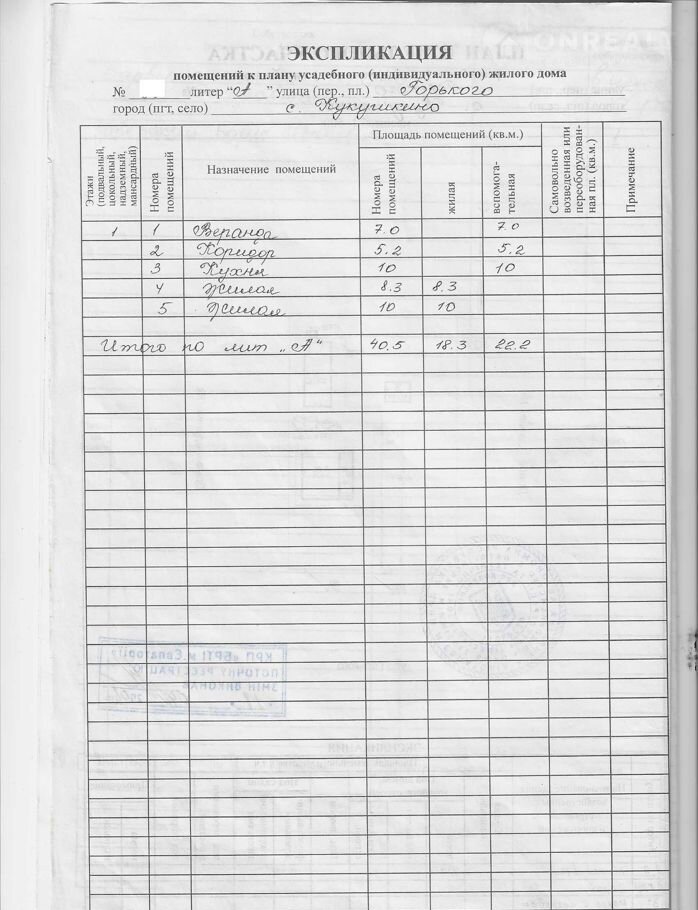 ЭКСПЛИКАЦИЯ
помещений к плану усадебного (индивидуального) жилого дома
№ литер “А” улица (пер., пл.) Горького
город (пгт, село) с. Кукушкино
Этажи (подвальный, цокольный, надземный, мансардный)
Номера помещений
Назначение помещений
Площадь помещений (кв.м.)
Номера помещений
жилая
вспомога-тельная
Самовольно возведенная или переоборудован-ная пл. (кв.м.)
Примечание
1 1 Веранда 7.0 7.0
2 Коридор 5.2 5.2
3 Кухня 10 10
4 Жилая 8.3 8.3
5 Жилая 10 10
Итого по лит „А“ 40.5 18.3 22.2